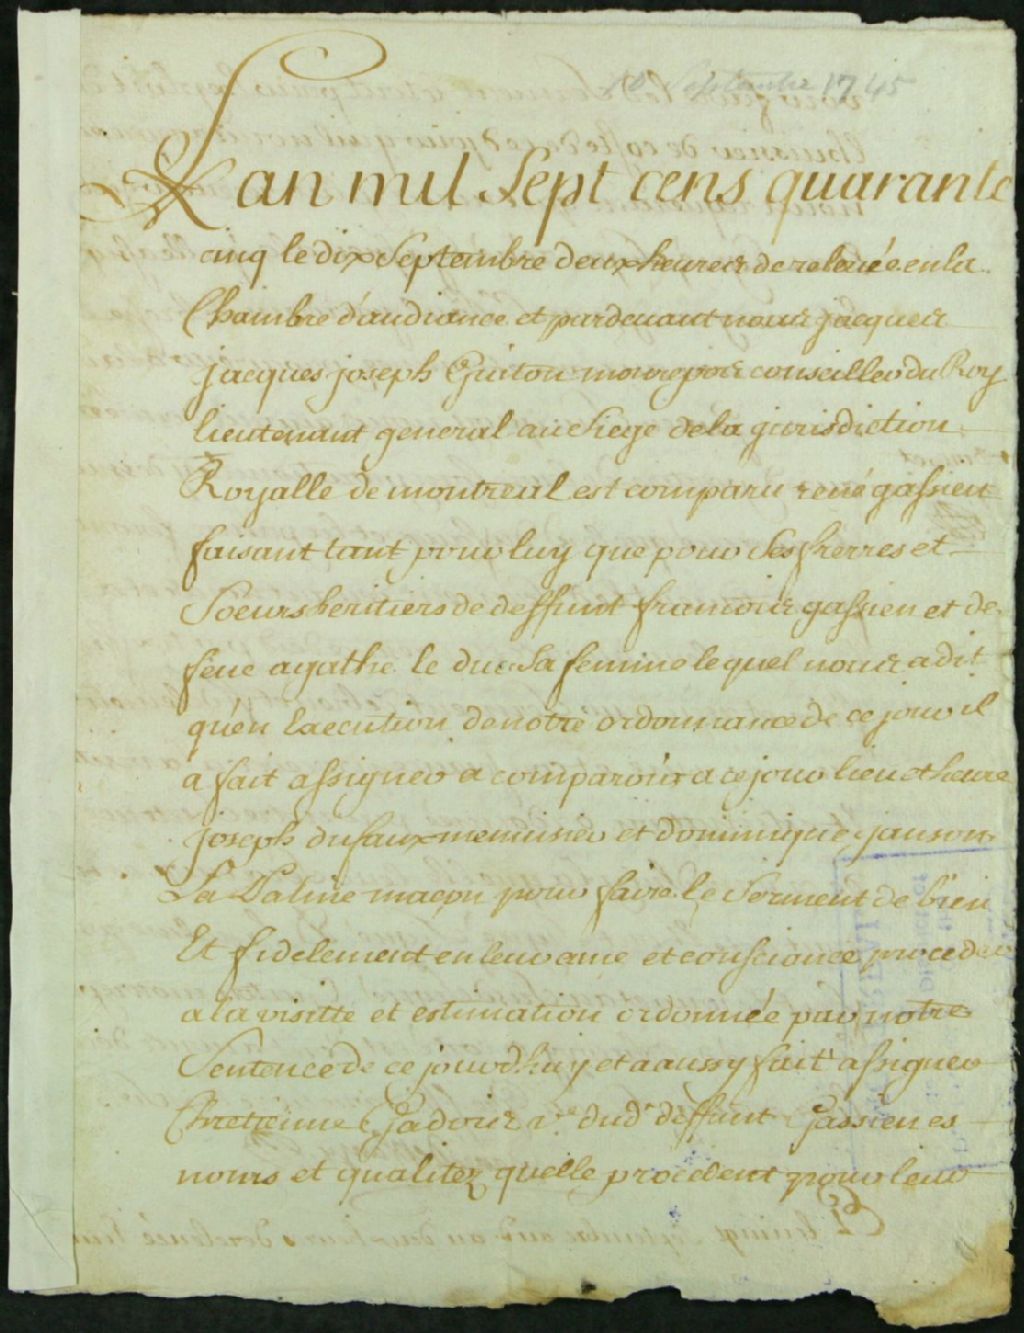 10 Septembre 1745
L'an mil Sept cens quarante
cinq le dix Septembre deux heures de relevée en la
Chambre d'audiance et pardevant nous jacques
jacques joseph Guiton monrepos conseiller du Roy
lieutenant general au siege de la jurisdiction
Royalle de montreal est comparu rené gassien
faisant tant pour luy que pour Ses frerres et
Soeurs heritiers de deffunt francois gassien et de
feue agathe le duc Sa femme lequel nous a dit
qu'en Execution de notre ordonnance de ce jour il
a fait assigner a comparoir a ce jour lieu et heure
joseph dufaux menusier et dominique janson
La Palme maçon pour faire le Serment de bien
Et fidelement en leur ame et conscience proceder
a la visitte et estimation ordonnée par notre
Sentence de ce jourd'huy et a aussy fait assigner
Chretienne Gadois ve dud deffunt Gassien es
noms et qualitez quelle procedent pour leur